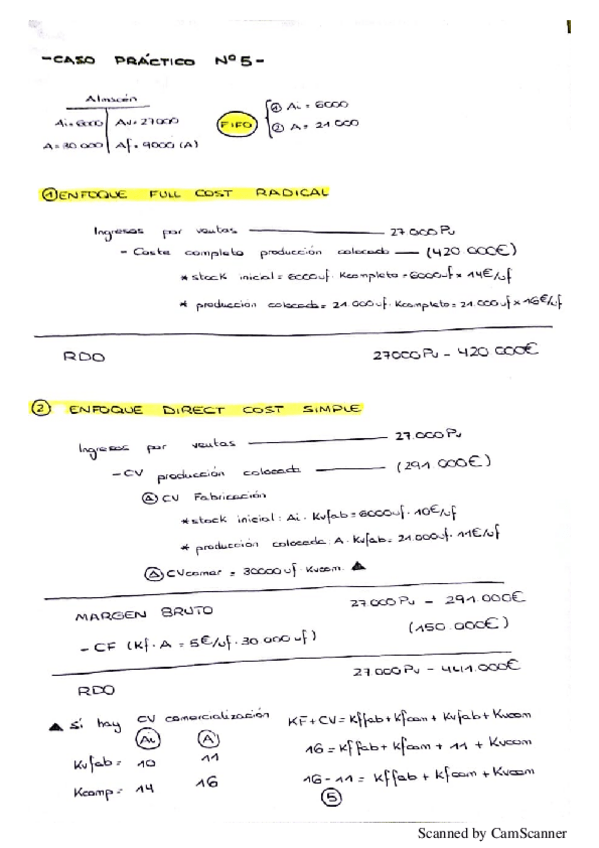 -CASO PRÁCTICO Nº5-
Almacén
Ai=6000 Av=27000
A=30 000 Af=9000 (A)
FIFO
① Ai=6000
② A=21 000
① ENFOQUE FULL COST RADICAL
Ingresos por ventas 27 000 Pv
- Coste completo producción colocada (420 000€)
* stock inicial=6000uf·Kcompleto=6000uf×14€/uf
* produccion colocada=21 000uf·Kcompleto=21.000uf×16€/uf
RDO 27000 Pv - 420 000€
② ENFOQUE DIRECT COST SIMPLE
Ingresos por ventas 27.000 Pv
- CV producción colocada (291 000€)
Ⓐ CV Fabricación
* stock inicial: Ai·Kvfab=6000uf·10€/uf
* producción colocada: A·Kvfab=21.000uf·11€/uf
Ⓐ CVcomer = 30000uf·Kvcom ▲
MARGEN BRUTO 27 000 Pv - 291.000€
- CF (Kf·A=5€/uf·30 000 uf) (150.000€)
RDO 27000 Pv - 441.000€
▲ Si hay CV comercialización
Ai A
Kvfab= 10 11
Kcomp= 14 16
KF+CV=Kffab+Kfcom+Kvfab+Kvcom
16=Kffab+Kfcom+11+Kvcom
16-11=Kffab+Kfcom+Kvcom
⑤
Scanned by CamScanner